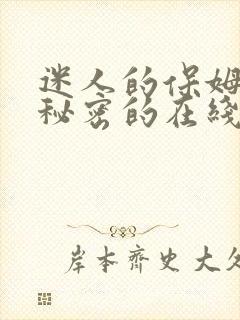 迷人的保姆
秘密的在线
岸本齊史大久